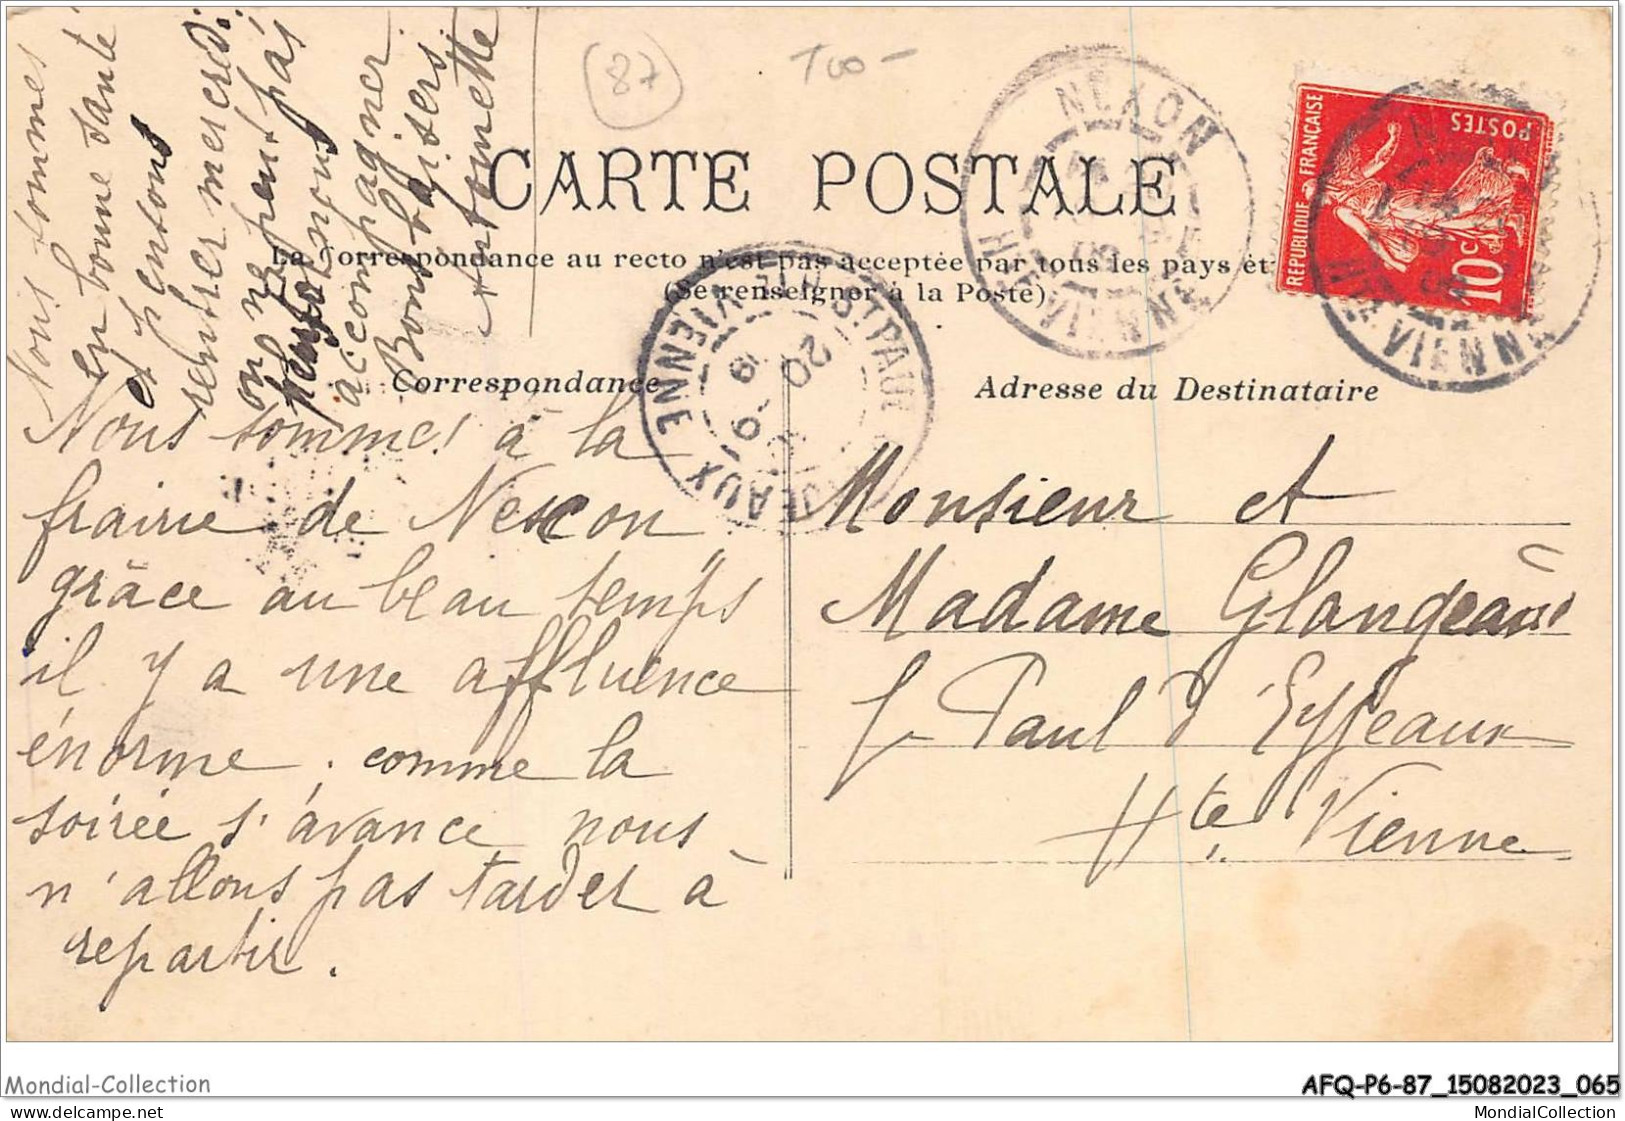 87
CARTE POSTALE
La Correspondance au recto n'est pas acceptée par tous les pays et
(Se renseigner à la Poste)
Correspondance
Adresse du Destinataire
RÉPUBLIQUE FRANÇAISE
POSTES
10c
NEXON
HTE VIENNE
ST PAUL
EYJEAUX
VIENNE
20
9
Nous sommes à la
frairie de Nexon
grâce au beau temps
il y a une affluence
énorme. comme la
soirée s'avance nous
n'allons pas tarder à
repartir.
Nous sommes
en bonne santé
et pensons
rentrer mercredi
on ne peut pas
nous
accompagner.
Bons baisers.
Antoinette
Monsieur et
Madame Glangeaud
St Paul d'Eyjeaux
Hte Vienne
Mondial-Collection
AFQ-P6-87_15082023_065
www.delcampe.net
MondialCollection